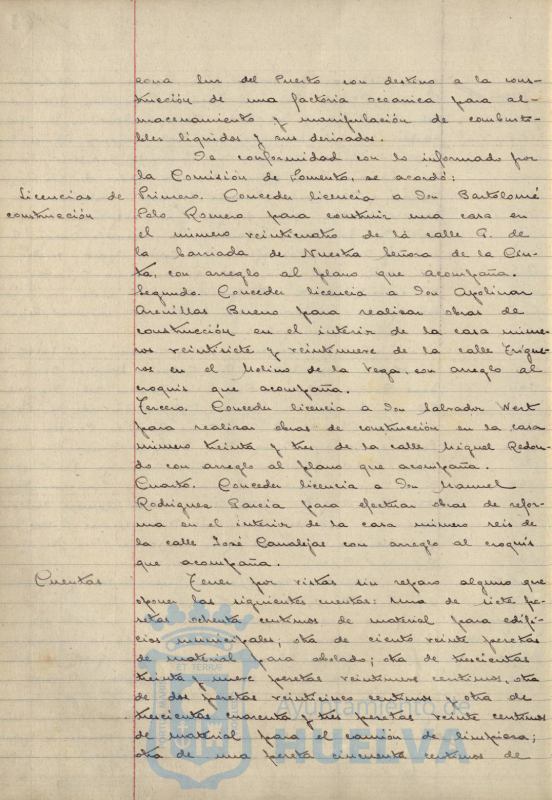 zona sur del Puerto con destino a la cons-
trucción de una factoria oceanica para al-
macenamiento y manipulación de combusti-
bles liquidos y sus derivados.
De conformidad con lo informado por
la Comisión de Fomento, se acordó:
Licencias de
construcción
Primero. Conceder licencia a Don Bartolomé
Polo Romero para construir una casa en
el número veinticuatro de la calle G. de
la barriada de Nuestra Señora de la Cin-
ta, con arreglo al plano que acompaña.
Segundo. Conceder licencia a Don Apolinar
Arenillas Bueno para realizar obras de
construcción en el interior de la casa núme-
ros veintisiete y veintinueve de la calle Trigue-
ros en el Molino de la Vega, con arreglo al
croquis que acompaña.
Tercero. Conceder licencia a Don Salvador West
para realizar obras de construcción en la casa
número treinta y tres de la calle Miguel Redon-
do con arreglo al plano que acompaña.
Cuarto. Conceder licencia a Don Manuel
Rodriguez Garcia para efectuar obras de refor-
ma en el interior de la casa número seis de
la calle José Canalejas con arreglo al croquis
que acompaña.
Cuentas
Tener por vistas sin reparo alguno que
oponer las siguientes cuentas: una de siete pe-
setas ochenta centimos de material para edifi-
cios municipales; otra de ciento veinte pesetas
de material para obolado; otra de trescientas
treinta y nueve pesetas veintinueve centimos, otra
de dos pesetas veinticinco centimos y otra de
trescientas cuarenta y tres pesetas veinte centimos
de material para el camión de limpieza;
otra de una peseta cincuenta centimos de
Ayuntamiento de
HUELVA